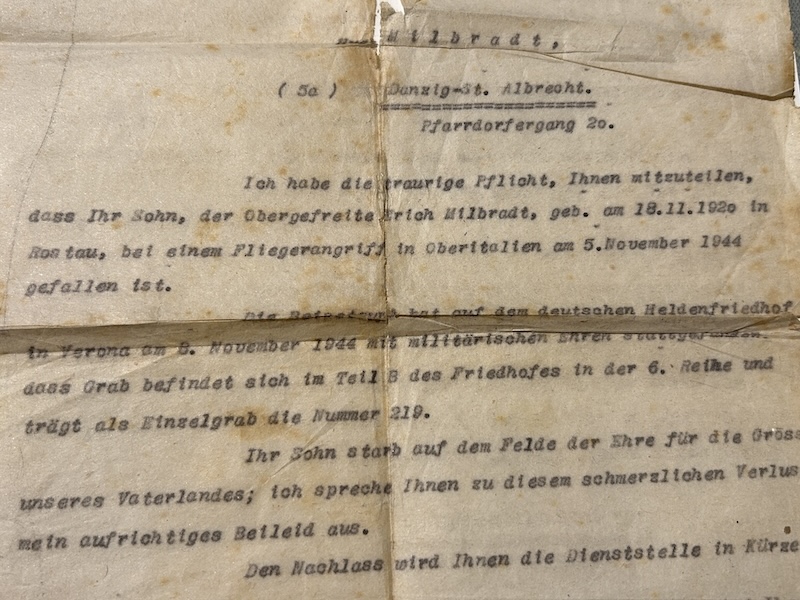 Milbradt,
( 5a ) Danzig-St. Albrecht.
Pfarrdorfergang 2o.
Ich habe die traurige Pflicht, Ihnen mitzuteilen,
dass Ihr Sohn, der Obergefreite Erich Milbradt, geb. am 18.11.192o in
Rostau, bei einem Fliegerangriff in Oberitalien am 5.November 1944
gefallen ist.
Die Beisetzung hat auf dem deutschen Heldenfriedhof
in Verona am 8. November 1944 mit militärischen Ehren stattgefunden.
dass Grab befindet sich im Teil B des Friedhofes in der 6. Reihe und
trägt als Einzelgrab die Nummer 219.
Ihr Sohn starb auf dem Felde der Ehre für die Gröss
unseres Vaterlandes; ich spreche Ihnen zu diesem schmerzlichen Verlus
mein aufrichtiges Beileid aus.
Den Nachlass wird Ihnen die Dienststelle in Kürze